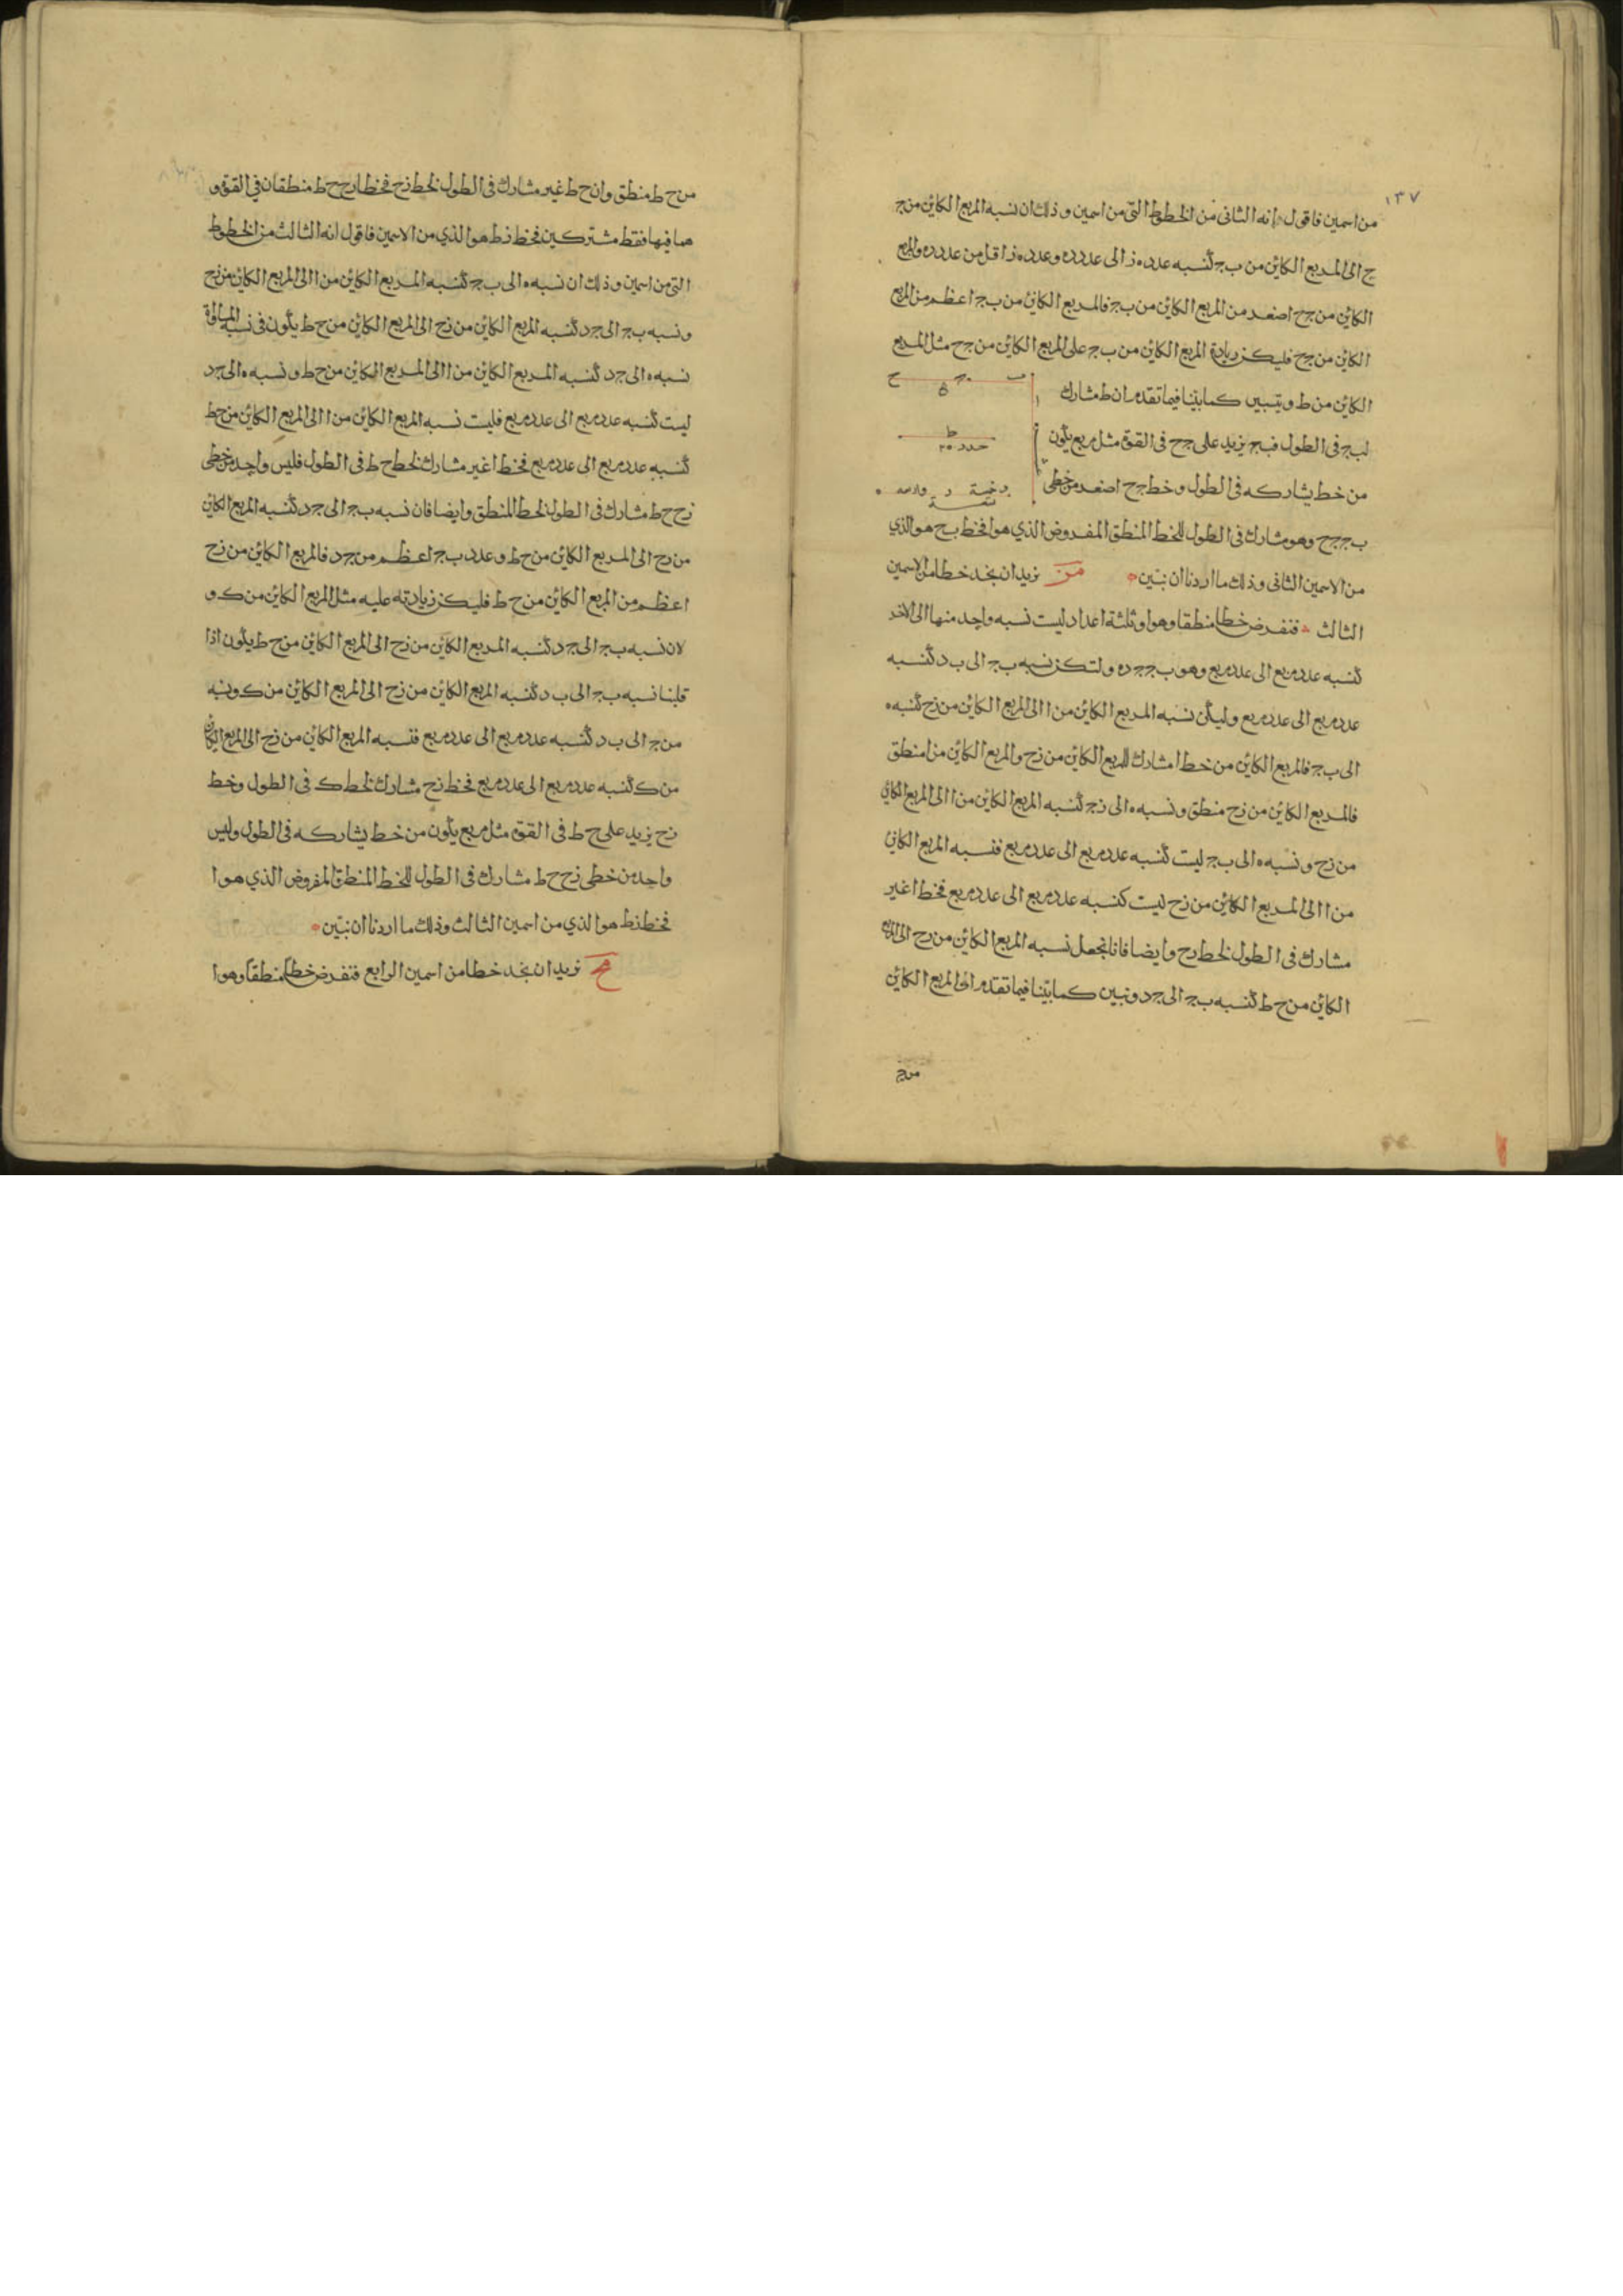 ١٣٧
من اسمين فاقول انه الثانى من الخطوط التى من اسمين وذلك ان نسبه المربع الكاين من ج
ح الى المربع الكاين من ب ج كنسبه عدد ه ز الى عدد د ه وعدد ه ز اقل من عدد د ه والمربع
الكاين من ج ح اصغر من المربع الكاين من ب ج فالمربع الكاين من ب ج اعظم من المربع
الكاين من ج ح فليكن زيادة المربع الكاين من ب ج على المربع الكاين من ج ح مثل المربع
الكاين من ط ويتبين كما بينا فيما تقدم ان ط مشارك
لب ج فى الطول فب ج يزيد على ج ح فى القوة مثل مربع يكون
من خط يشاركه فى الطول وخط ج ح اصغر من خطى
ب ج ج ح وهو مشارك فى الطول للخط المنطق المفروض الذي هو ا فخط ب ح هو الذي
من الاسمين الثانى وذلك ما اردنا ان نبين مز نريد ان نجد خطا من الاسمين
الثالث فنفرض خطا منطقا وهو ا وثلثة اعداد ليست نسبه واحد منها الى الاخر
كنسبه عدد مربع الى عدد مربع وهو ب ج ج د ه ولتكن نسبه ب ج الى ب د كنسبه
عدد مربع الى عدد مربع وليكن نسبه المربع الكاين من ا الى المربع الكاين من زح كنسبه ه
الى ب ج فالمربع الكاين من خط ا مشارك للمربع الكاين من زح والمربع الكاين من ا منطق
فالمربع الكاين من زح منطق ونسبه ه الى زج كنسبه المربع الكاين من ا الى المربع الكاين
من زح ونسبه ه الى ب ج ليست كنسبه عدد مربع الى عدد مربع فنسبه المربع الكاين
من ا الى المربع الكاين من زح ليست كنسبه عدد مربع الى عدد مربع فخط ا غير
مشارك فى الطول لخط زح وايضا فانا نجعل نسبه المربع الكاين من زح الى المربع
الكاين من ح ط كنسبه ب ج الى ج د ونبين كما بينا فيما تقدم ان المربع الكاين
من ح
من ح ط منطق وان ح ط غير مشارك فى الطول لخط زح فخطا زح ح ط منطقان في القوة و
هما فيها فقط مشتركين فخط زط هو الذي من الاسمين فاقول انه الثالث من الخطوط
التى من اسمين وذلك ان نسبه ه الى ب ج كنسبه المربع الكاين من ا الى المربع الكاين من زح
ونسبه ب ج الى ج د كنسبه المربع الكاين من زح الى المربع الكاين من ح ط يكون فى نسبه المساواة
نسبه ه الى ج د كنسبه المربع الكاين من ا الى المربع الكاين من ح ط ونسبه ه الى ج د
ليست كنسبه عدد مربع الى عدد مربع فليست نسبه المربع الكاين من ا الى المربع الكاين من ح ط
كنسبه عدد مربع الى عدد مربع فخط ا غير مشارك لخط ح ط فى الطول فليس واحد من خطى
زح ح ط مشارك فى الطول لخط المنطق وايضا فان نسبه ب ج الى ج د كنسبه المربع الكاين
من زح الى المربع الكاين من ح ط وعدد ب ج اعظم من ج د فالمربع الكاين من زح
اعظم من المربع الكاين من ح ط فليكن زيادته عليه مثل المربع الكاين من ك و
لان نسبه ب ج الى ج د كنسبه المربع الكاين من زح الى المربع الكاين من ح ط يكون اذا
قلبنا نسبه ب ج الى ب د كنسبه المربع الكاين من زح الى المربع الكاين من ك ونسبه
من ج الى ب د كنسبه عدد مربع الى عدد مربع فنسبه المربع الكاين من زح الى المربع الكاين
من ك كنسبه عدد مربع الى عدد مربع فخط زح مشارك لخط ك فى الطول وخط
زح يزيد على ح ط فى القوة مثل مربع يكون من خط يشاركه فى الطول وليس
واحد من خطى زح ح ط مشارك فى الطول للخط المنطق المفروض الذي هو ا
فخط زط هو الذي من اسمين الثالث وذلك ما اردنا ان نبين
مح نريد ان نجد خطا من اسمين الرابع فنفرض خطا منطقا وهو ا